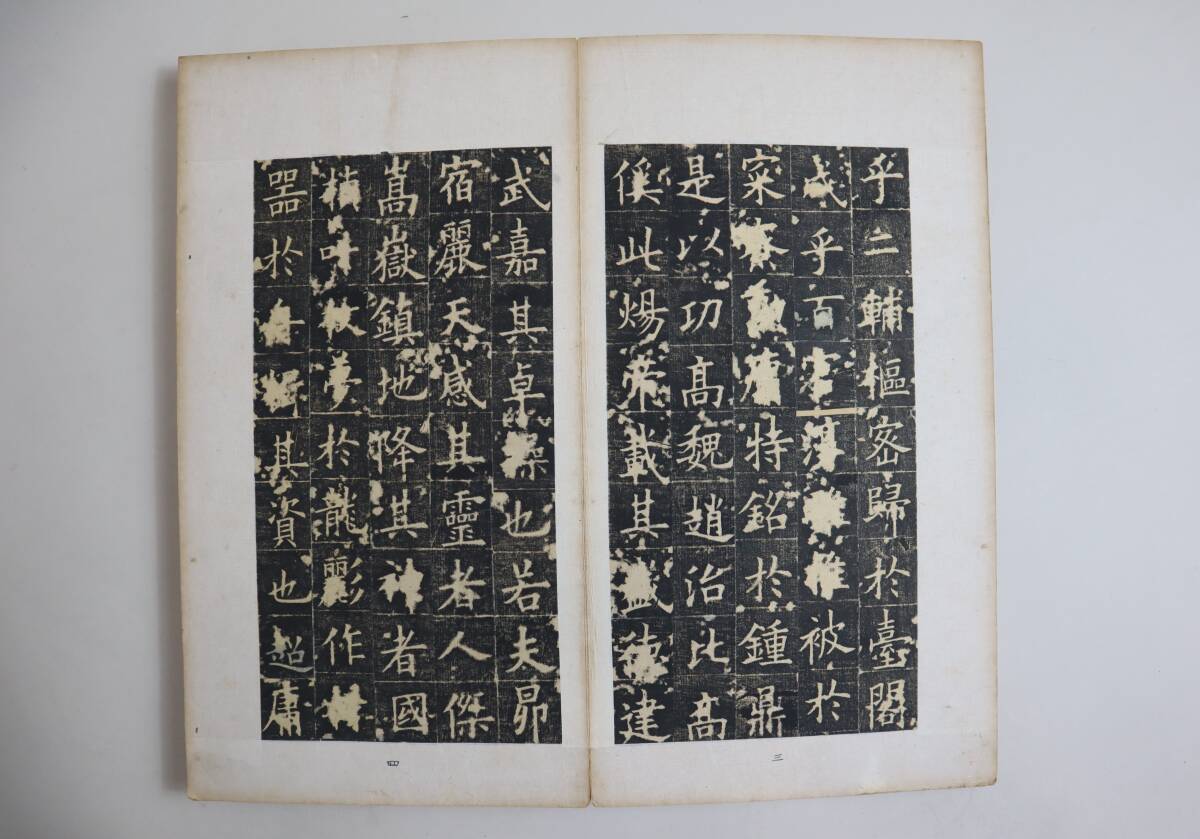 乎二輔樞密歸於臺閣
乎百被於
寀奏勳庸特銘於鍾鼎
是以功高魏趙治比高
傒此煬載其盛德建
武嘉其卓也若夫昴
宿麗天感其靈者人傑
嵩嶽鎮地降其神者國
楨叶夢於龍彲作
器於其資也超庸
三
四